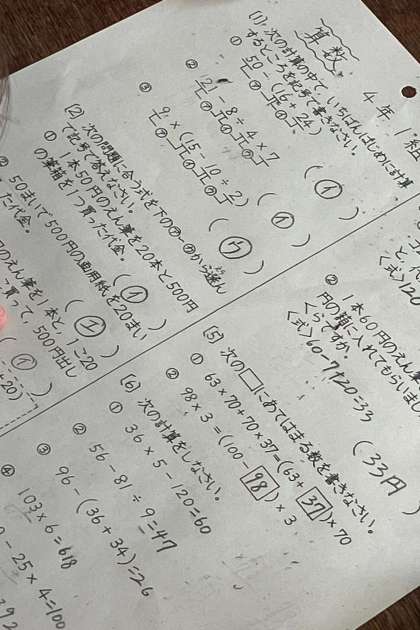 算数
4年 1組
[1] 次の計算の中で、いちばんはじめに計算
するところを記号で書きなさい。
① 50-(16+24)
㋐ ㋑
(㋑)
② 21-8÷4×7
㋐ ㋑ ㋒
(㋑)
③ 9×(15-10÷2)
㋐ ㋑ ㋒
(㋒)
[2] 次の問題に合う式を下の㋐~㋓から選ん
で記号で答えなさい。
① 1本50円のえん筆を20本と500円
の筆箱を1つ買った代金。
(㋑)
② 50まいで500円の画用紙を20まい
た代金。
(㋓)
のえん筆を1本と、1こ20
1つ買って 500円出し
② 1本60円のえん筆
円の箱に入れてもらいま
くらですか。
<式>60-7+20=33
(33円)
[5] 次の□にあてはまる数を書きなさい。
① 63×70+70×37=(63+37)×70
② 98×3=(100-98)×3
[6] 次の計算をしなさい。
① 36×5-120=60
② 56-81÷9=47
③ 96-(36+34)=26
④ 103×6=618
-25×4=100